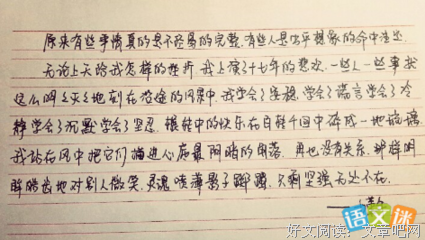 原来有些事情真的是不经意的完整,有些人是出乎想象的命中注定
无论上天给我怎样的挫折,我上演了十七年的悲欢,一些人一些事就
这么明明灭灭地刻在沿途的风景中,我学会了坚强,学会了谎言学会了冷
静学会了沉默学会了坚忍,辗转中的快乐在百转千回中碎成一地琉璃
我站在风中把它们扫进心底最阴暗的角落,再也没有关系,那样明
眸皓齿地对别人微笑,灵魂喷薄影子踯躅,只剩坚强无处不在.
语文迷
好文阅读,文章吧网